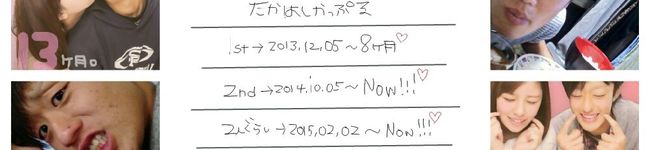 たかよしかっぷる
1st→2013.12.05～8ヶ月♡
2nd→2014.10.05～Now!!!♡
→2015.02.02～Now!!!♡
13ヶ月。